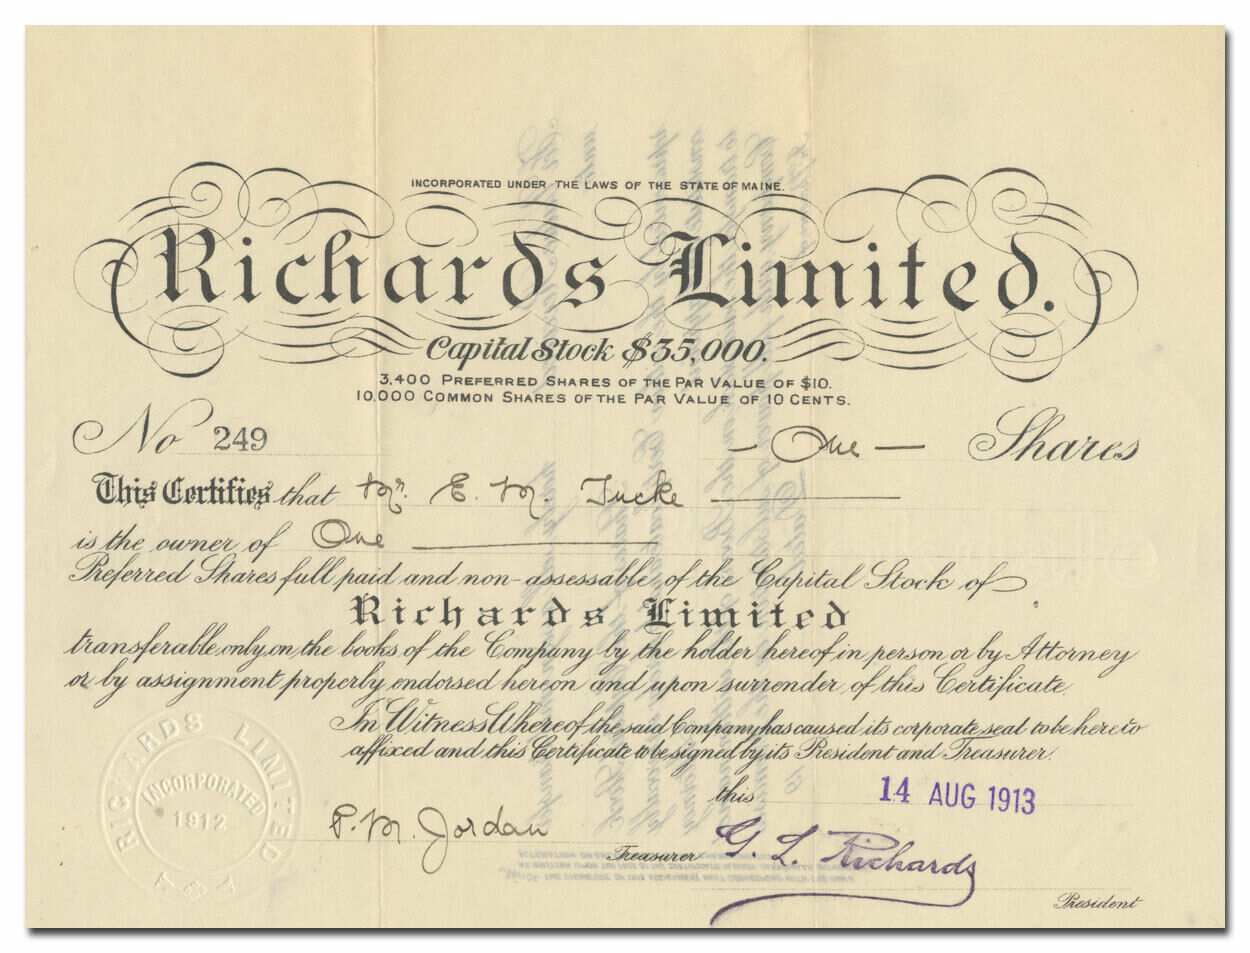 INCORPORATED UNDER THE LAWS OF THE STATE OF MAINE.
Richards Limited.
Capital Stock $35,000.
3,400 PREFERRED SHARES OF THE PAR VALUE OF $10.
10,000 COMMON SHARES OF THE PAR VALUE OF 10 CENTS.
No 249 — One — Shares
This Certifies that Mr. E. M. Tucke
is the owner of One
Preferred Shares full paid and non-assessable, of the Capital Stock of
Richards Limited
transferable, only, on the books of the Company by the holder hereof in person or by Attorney
or by assignment properly endorsed hereon and upon surrender, of this Certificate.
In Witness Whereof the said Company has caused its corporate seal to be hereto
affixed and this Certificate to be signed by its President and Treasurer.
this 14 AUG 1913
P. M. Jordan
Treasurer
G. L. Richards
President
RICHARDS LIMITED
INCORPORATED
1912